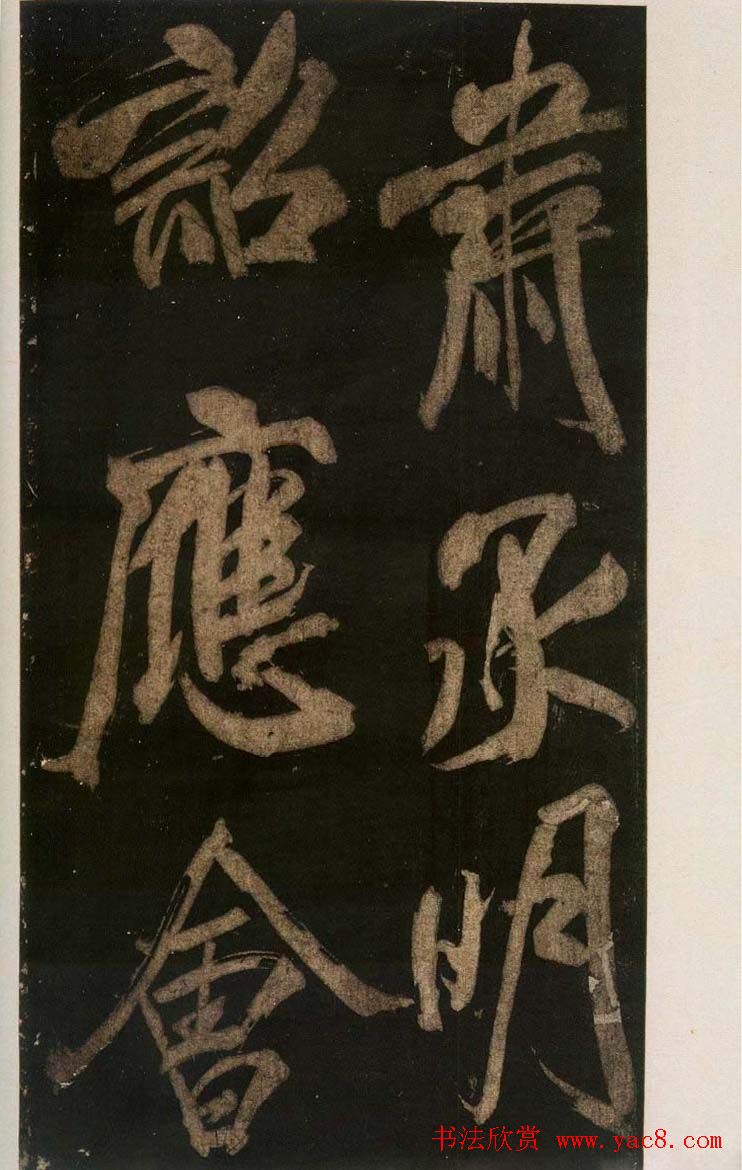 肅承明
詔應會
书法欣赏 www.yac8.com